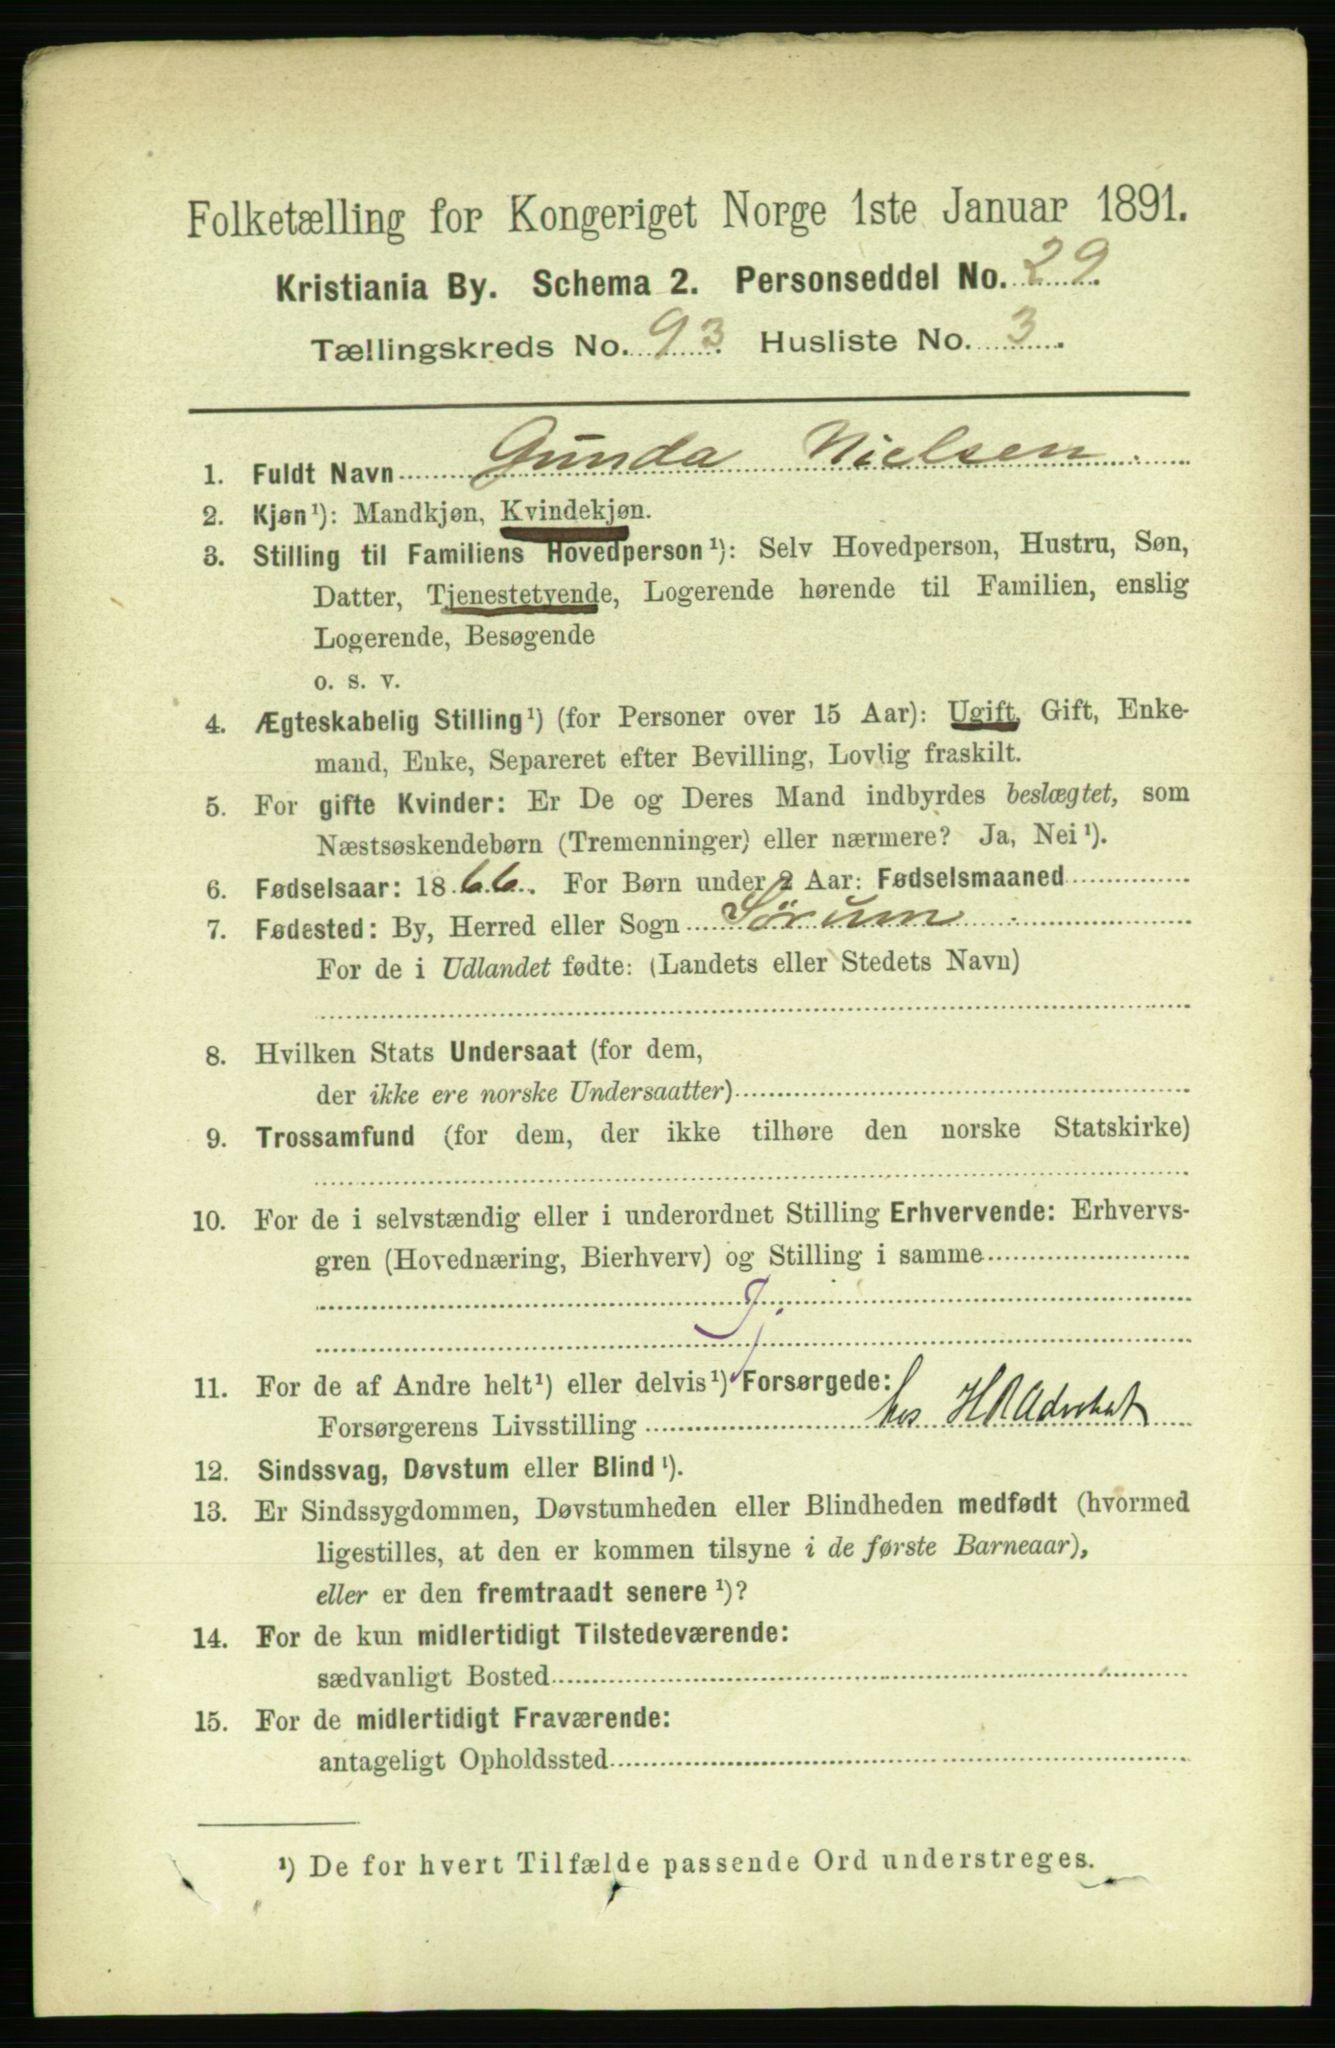 Folketælling for Kongeriget Norge 1ste Januar 1891.
Kristiania By. Schema 2. Personseddel No. 29.
Tællingskreds No. 93. Husliste No. 3.
1. Fuldt Navn Gunda Nielsen
2. Kjøn¹): Mandkjøn, Kvindekjøn.
3. Stilling til Familiens Hovedperson¹): Selv Hovedperson, Hustru, Søn,
Datter, Tjenestetyende, Logerende hørende til Familien, enslig
Logerende, Besøgende
o. s. v.
4. Ægteskabelig Stilling¹) (for Personer over 15 Aar): Ugift, Gift, Enke-
mand, Enke, Separeret efter Bevilling, Lovlig fraskilt.
5. For gifte Kvinder: Er De og Deres Mand indbyrdes beslægtet, som
Næstsøskendebørn (Tremenninger) eller nærmere? Ja, Nei¹).
6. Fødselsaar: 1866. For Børn under 2 Aar: Fødselsmaaned
7. Fødested: By, Herred eller Sogn Sørum
For de i Udlandet fødte: (Landets eller Stedets Navn)
8. Hvilken Stats Undersaat (for dem,
der ikke ere norske Undersaatter)
9. Trossamfund (for dem, der ikke tilhøre den norske Statskirke)
10. For de i selvstændig eller i underordnet Stilling Erhvervende: Erhvervs-
gren (Hovednæring, Bierhverv) og Stilling i samme
11. For de af Andre helt¹) eller delvis¹) Forsørgede:
Forsørgerens Livsstilling hos HRAdvokat
12. Sindssvag, Døvstum eller Blind¹).
13. Er Sindssygdommen, Døvstumheden eller Blindheden medfødt (hvormed
ligestilles, at den er kommen tilsyne i de første Barneaar),
eller er den fremtraadt senere¹)?
14. For de kun midlertidigt Tilstedeværende:
sædvanligt Bosted
15. For de midlertidigt Fraværende:
antageligt Opholdssted
¹) De for hvert Tilfælde passende Ord understreges.